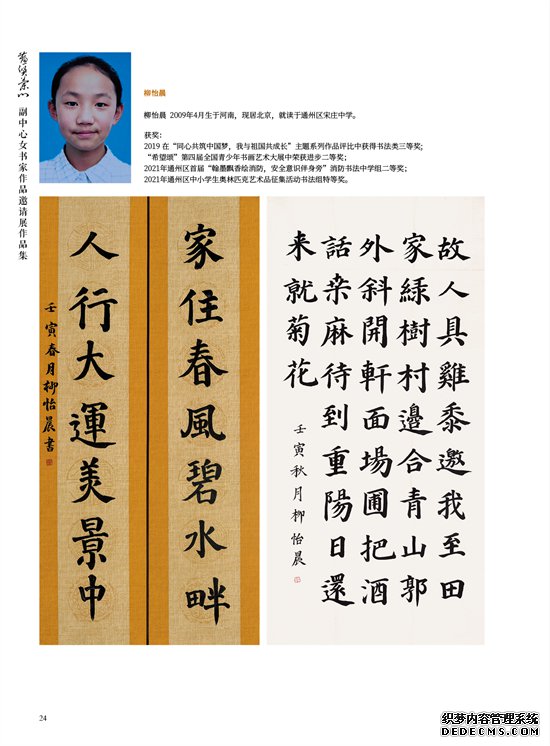 副中心女书家作品邀请展作品集
柳怡晨
柳怡晨 2009年4月生于河南，现居北京，就读于通州区宋庄中学。
获奖：
2019 在“同心共筑中国梦，我与祖国共成长”主题系列作品评比中获得书法类三等奖；
“希望颂”第四届全国青少年书画艺术大展中荣获进步二等奖；
2021年通州区首届“翰墨飘香绘消防，安全意识伴身旁”消防书法中学组二等奖；
2021年通州区中小学生奥林匹克艺术品征集活动书法组特等奖。
家住春風碧水畔
人行大運美景中
壬寅春月柳怡晨書
故人具雞黍邀我至田
家緑樹村邊合青山郭
外斜開軒面場圃把酒
話桒麻待到重陽日還
来就菊花
壬寅秋月柳怡晨
24
织梦内容管理系统
DEDECMS.COM